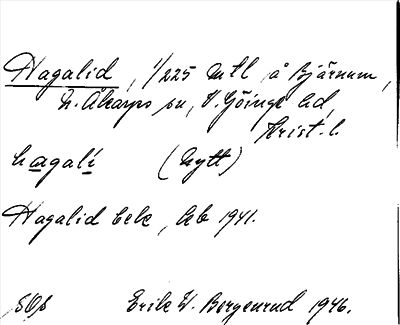 Hagalid, 1/225 mtl, å Bjärnum,
N. Åkarps sn, V. Göinge hd,
Krist. l.
hagali (Nytt)
Hagalid bebo, kb 1941.
SOß Erik W. Borgenrud 1946.